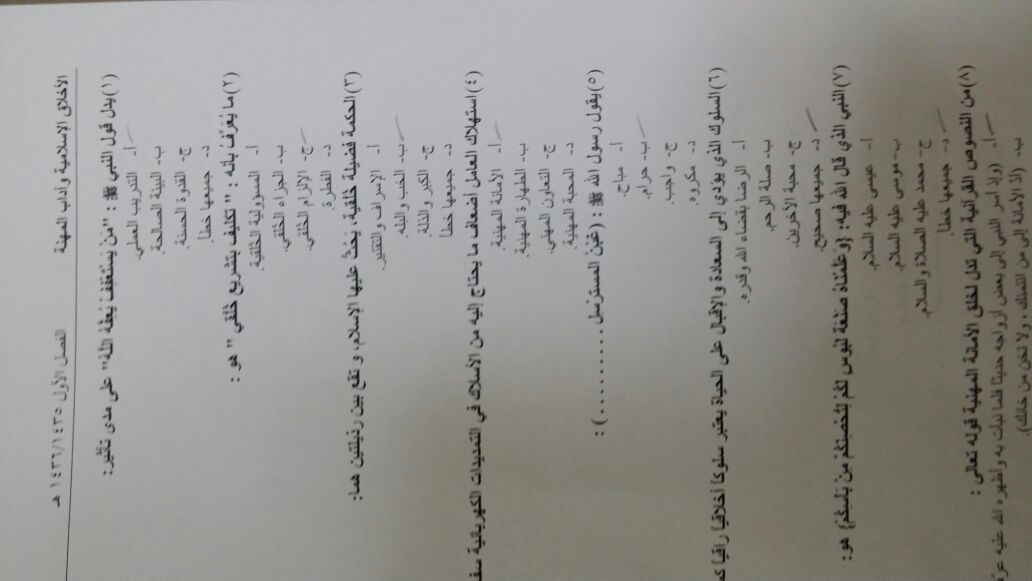 الأخلاق الإسلامية وآداب المهنة الفصل الأول ١٤٣٦/١٤٣٥ هـ
(١) يدل قول النبي ﷺ : "مَنْ يَسْتَعْفِفْ يُعِفَّهُ اللَّهُ" على مدى تأثير:
أ- التدريب العملي.
ب- البيئة الصالحة.
ج- القدوة الحسنة.
د- جميعها خطأ.
(٢) ما يُعَرَّفُ بأنه : "تكليف بتشريع خُلُقي" هو :
أ- المسؤولية الخُلُقية.
ب- الجزاء الخُلُقي.
ج- الإلزام الخُلُقي.
د- الفطرة.
(٣) الحكمة فضيلة خُلُقية، يحُثُّ عليها الإسلام، و تقع بين رذيلتين هما:
أ- الإسراف والتقتير.
ب- الخب والبله.
ج- الكبر والذلة.
د- جميعها خطأ
(٤) استهلاك العامل أضعاف ما يحتاج إليه من الأسلاك في التمديدات الكهربائية
أ- الأمانة المهنية.
ب- الطهارة المهنية.
ج- التعاون المهني.
د- المحبة المهنية.
(٥) يقول رسول الله ﷺ : (غَبْنُ المسترسل .........) :
أ- مباح.
ب- حرام.
ج- واجب.
د- مكروه.
(٦) السلوك الذي يؤدي إلى السعادة والإقبال على الحياة يعتبر سلوكاً أخلاقياً راقياً
أ- الرضا بقضاء الله وقدره.
ب- صلة الرحم.
ج- محبة الآخرين.
د- جميعها صحيح.
(٧) النبي الذي قال الله فيه: {وَعَلَّمْنَاهُ صَنْعَةَ لَبُوسٍ لَكُمْ لِتُحْصِنَكُمْ مِنْ بَأْسِكُمْ} هو:
أ- عيسى عليه السلام.
ب- موسى عليه السلام.
ج- محمد عليه الصلاة والسلام.
د- جميعها خطأ.
(٨) من النصوص القرآنية التي تدل لخلق الأمانة المهنية قوله تعالى :
أ- (وإذ أسر النبي إلى بعض أزواجه حديثاً فلما نبأت به وأظهره الله عليه
ب- (أدّ الأمانة إلى من ائتمنك، ولا تخن من خانك).